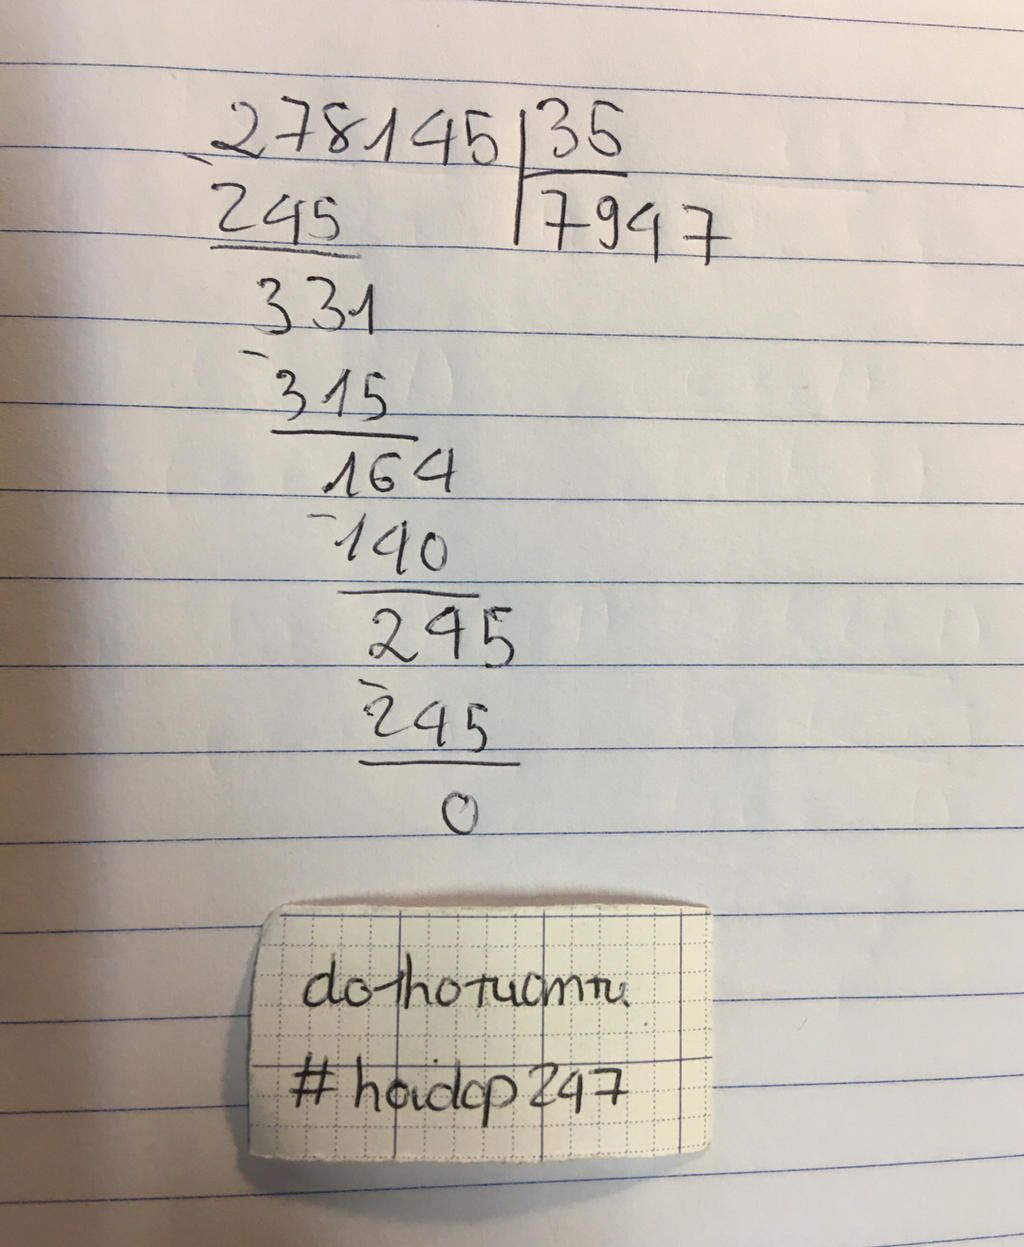 278145 35
245 7947
331
315
164
140
245
245
0
#haidcp247